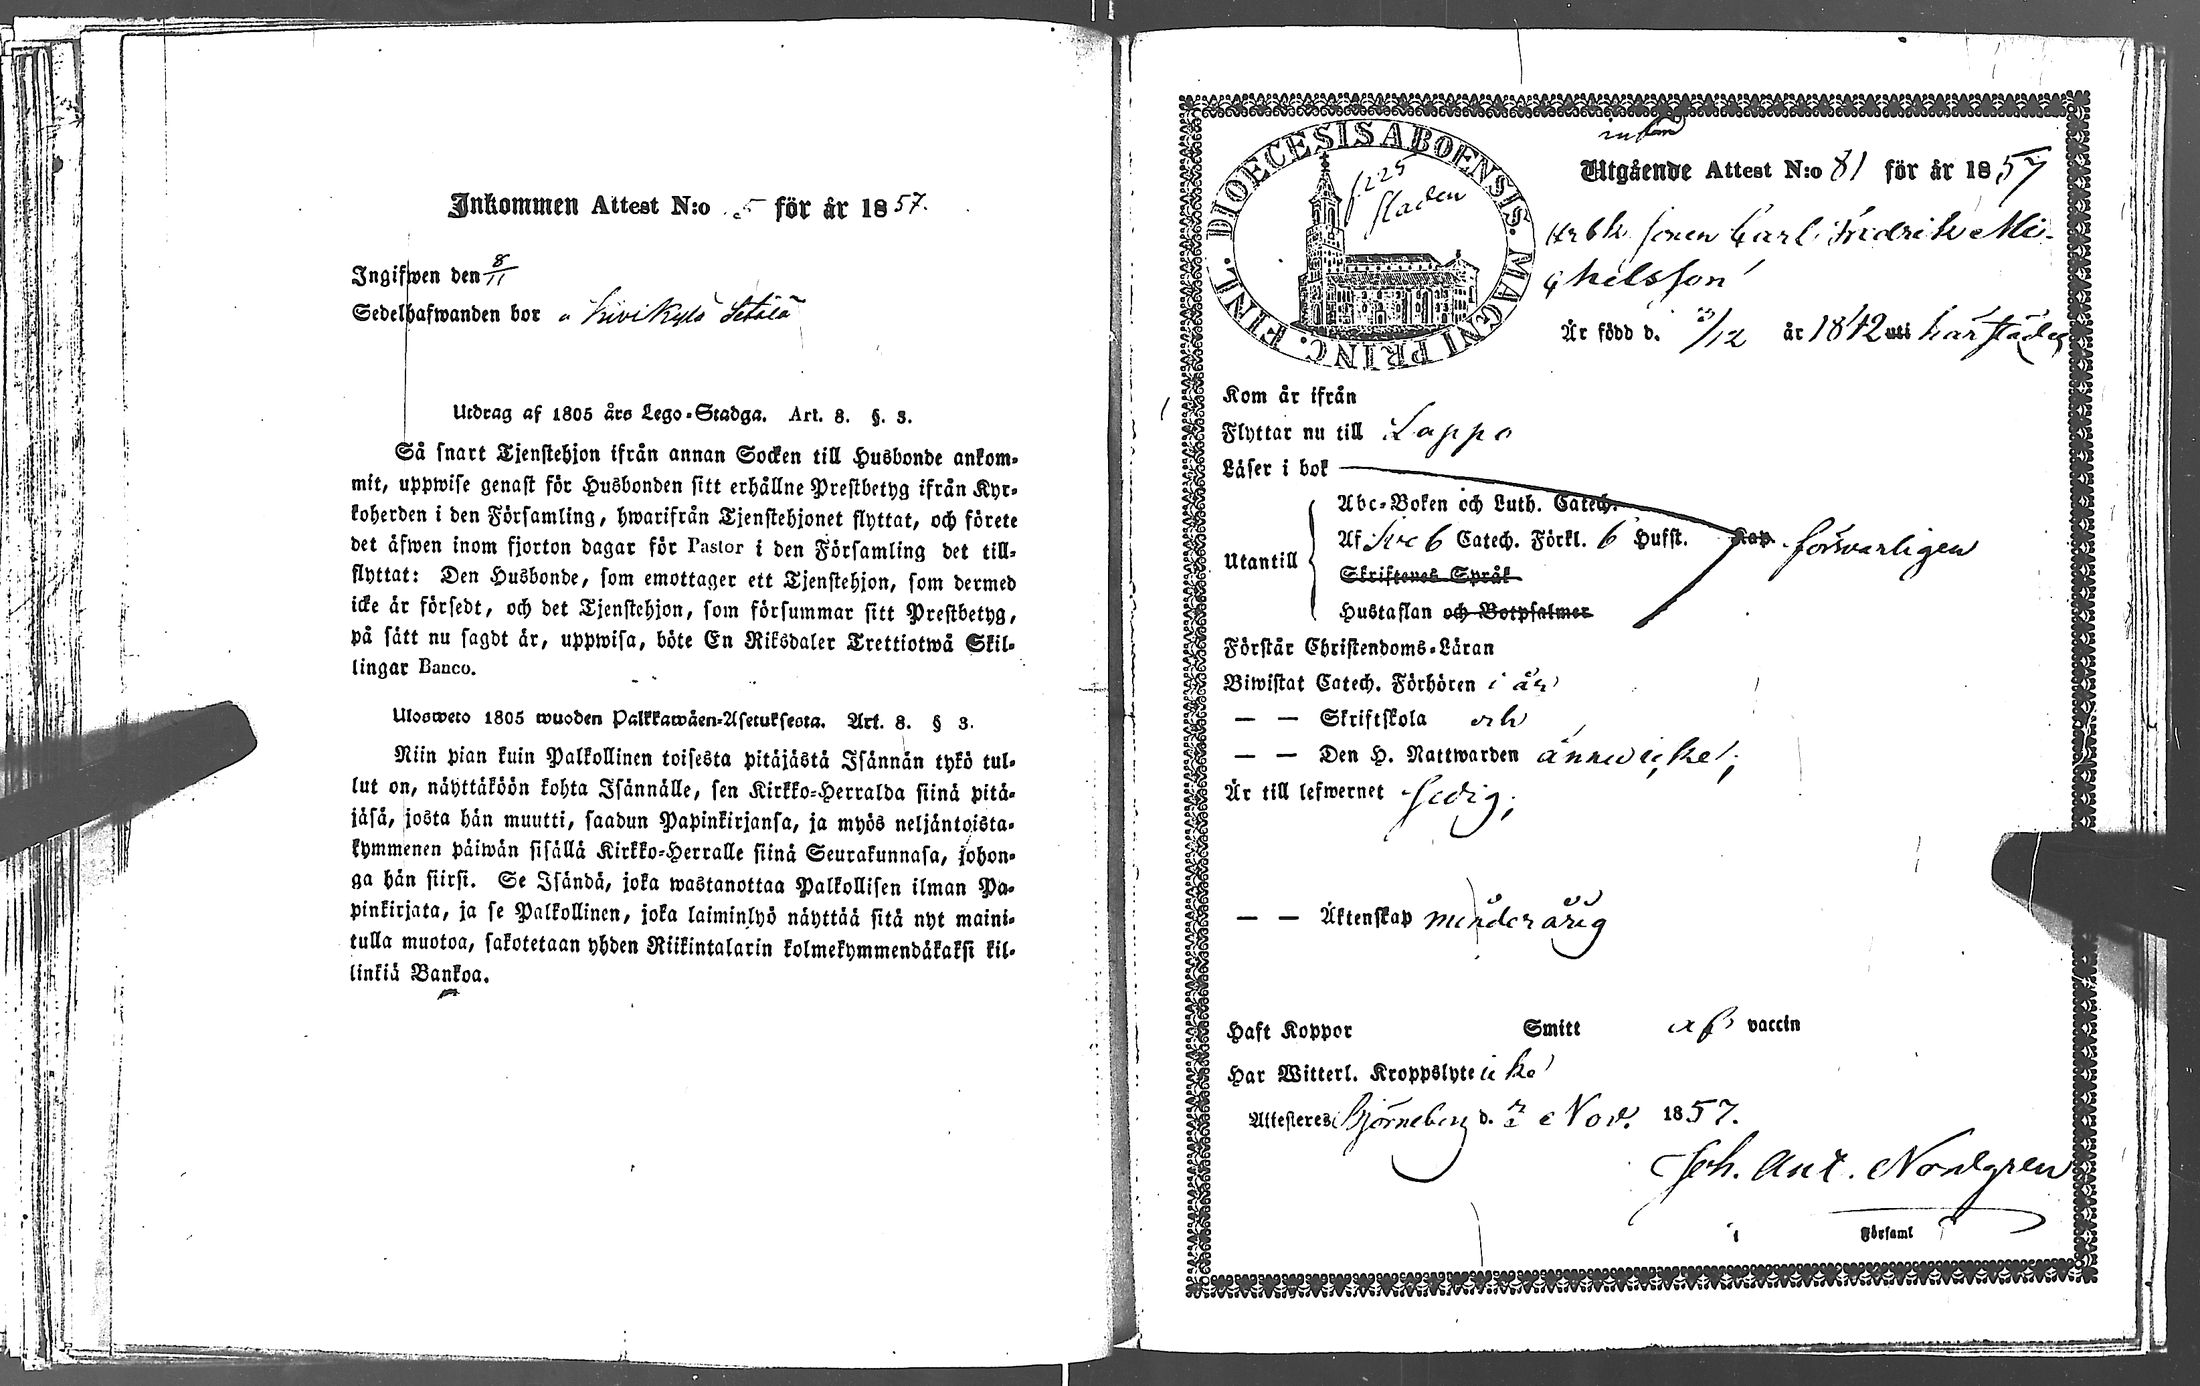 Inkommen Attest N:o 5 för år 1857.
Ingifwen den 8/11
Sedelhafwanden bor
Utdrag af 1805 års Lego-Stadga. Art. 8. §. 3.
Så snart Tjenstehjon ifrån annan Socken till Husbonde ankom-
mit, uppwise genast för Husbonden sitt erhållne Prestbetyg ifrån Kyr-
koherden i den Församling, hwarifrån Tjenstehjonet flyttat, och förete
det äfwen inom fjorton dagar för Pastor i den Församling det till-
flyttat: Den Husbonde, som emottager ett Tjenstehjon, som dermed
icke är försedt, och det Tjenstehjon, som försummar sitt Prestbetyg,
på sätt nu sagdt är, uppwisa, böte En Riksdaler Trettiotwå Skil-
lingar Banco.
Ulosweto 1805 wuoden Palkkawäen-Asetuksesta. Art. 8. § 3.
Niin pian kuin Palkollinen toisesta pitäjästä Isännän tykö tul-
lut on, näyttäköön kohta Isännälle, sen Kirkko-Herralda siinä pitä-
jäsä, josta hän muutti, saadun Papinkirjansa, ja myös neljäntoista-
kymmenen päiwän sisällä Kirkko-Herralle siinä Seurakunnasa, johon-
ga hän siirsi. Se Isändä, joka wastanottaa Palkollisen ilman Pa-
pinkirjata, ja se Palkollinen, joka laiminlyö näyttää sitä nyt maini-
tulla muotoa, sakotetaan yhden Riikintalarin kolmekymmendäkaksi kil-
linkiä Bankoa.
DIOECESIS ABOENSIS. MAGNI PRINC. FINL.
f225
staden
Utgående Attest N:o 81 för år 1857
sonen Carl Fredrik Mi-
chelsson
Är född d. 3/12 år 1842 uti härstädes
Kom år ifrån
Flyttar nu till Lappo
Läser i bok
Abc-Boken och Luth. Catech.
Utantill Af Sve 6 Catech. Förkl. 6 Hufst. Kap försvarligen
Skriftenes Språk
Hustaflan och Botpsalmer
Förstår Christendoms-Läran
Biwistat Catech. Förhören i år
— — Skriftskola och
— — Den H. Nattwarden ännu icke;
Är till lefwernet sedig;
— — Äktenskap minderårig
Haft Koppor Smitt af vaccin
Har Witterl. Kroppslyte icke
Attesteres Björneborg d. 2 Nov. 1857.
Joh. Ant. Nordgren
i Församl